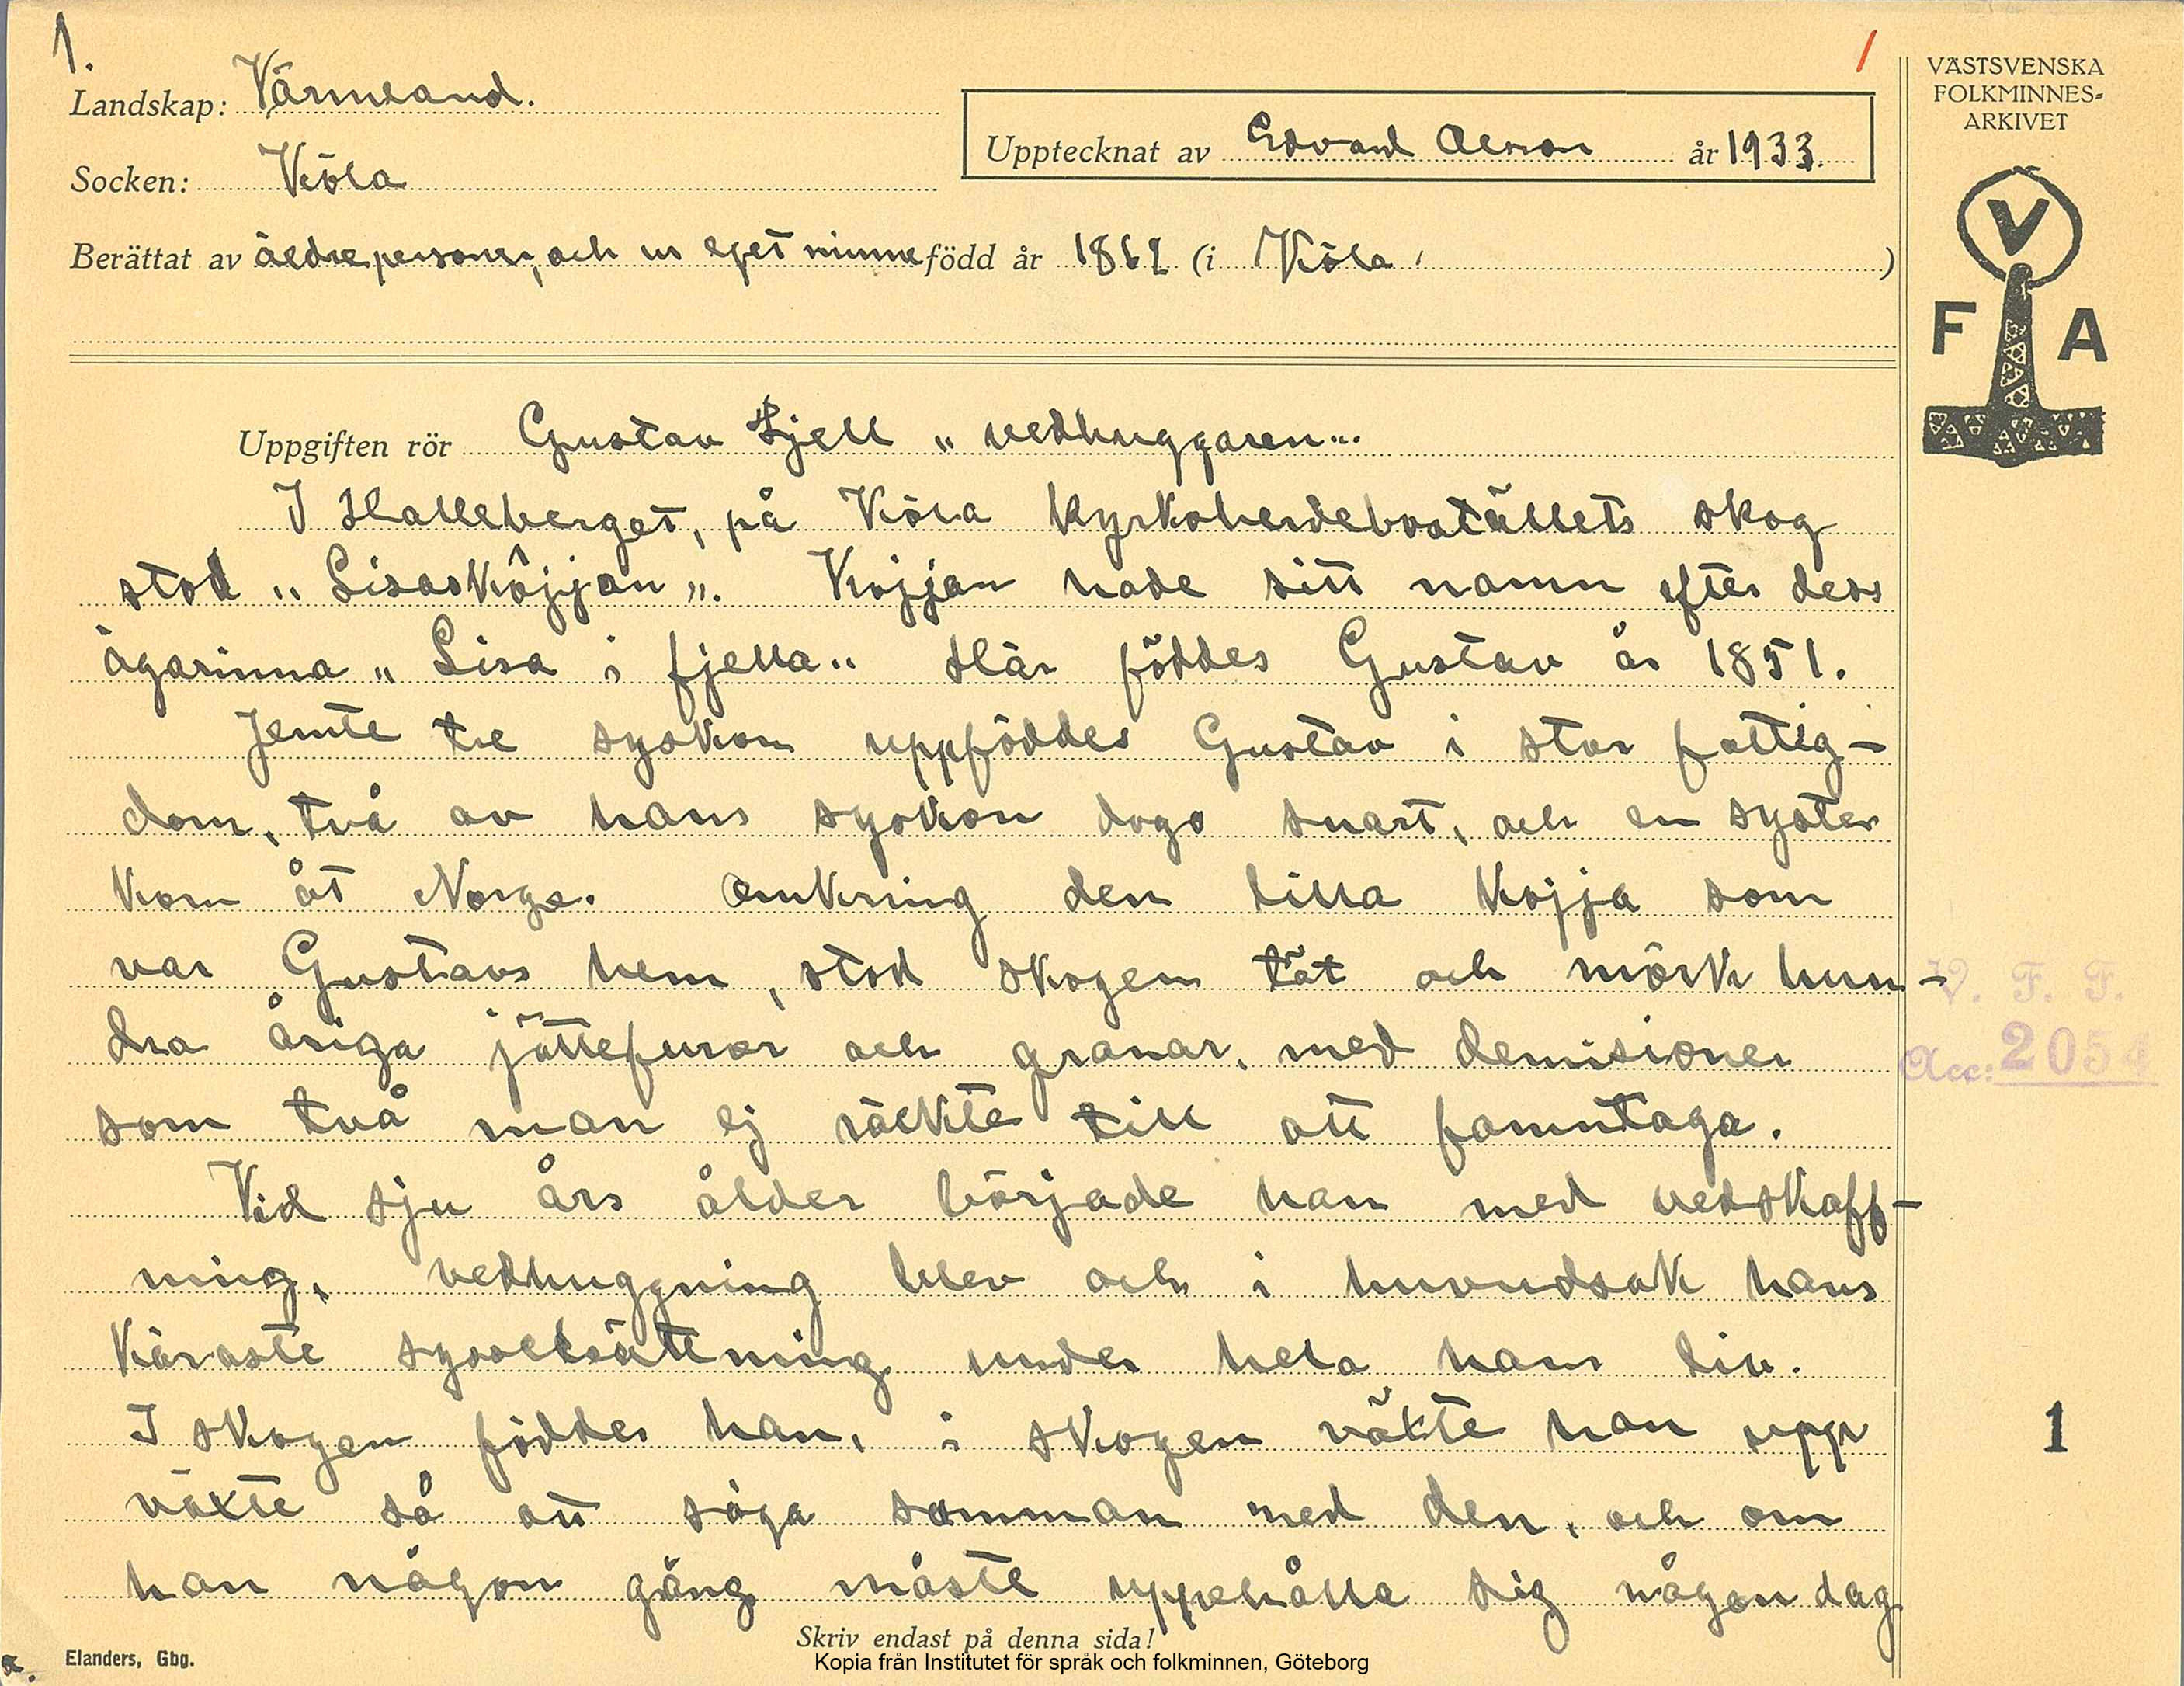 1.
/
Landskap: Värmland.
Socken: Köla
Upptecknat av Edvard Olsson år 1933.
Berättat av äldre personer, och ur eget minne född år 1862 (i Köla )
VÄSTSVENSKA
FOLKMINNES-
ARKIVET
V
F A
Uppgiften rör Gustav Fjell „ vedhuggaren".
I Halleberget, på Köla kyrkoherdeboställets skog
stod „ Lisaskôjjan ". Kojjan hade sitt namn efter dess
ägarinna „ Lisa i fjella" Här föddes Gustav år 1851.
Jemte tre syskon uppföddes Gustav i stor fattig-
dom, två av hans syskon dogo snart, och en syster
kom åt Norge. Omkring den lilla kojja som
var Gustavs hem, stod skogen tät och mörk hun-
dra åriga jättefuror och granar, med demisioner
som två man ej räckte till att famntaga.
Vid sju års ålder började han med vedskaff-
ning, vedhuggning blev och i huvudsak hans
käraste sysselsättning under hela hans liv.
I skogen föddes han, i skogen växte han upp
växte så att säga samman med den, och om
han någon gång måste uppehålla sig någon dag
V. F. F.
Acc: 2054
1
Skriv endast på denna sida!
Elanders, Gbg.
Kopia från Institutet för språk och folkminnen, Göteborg